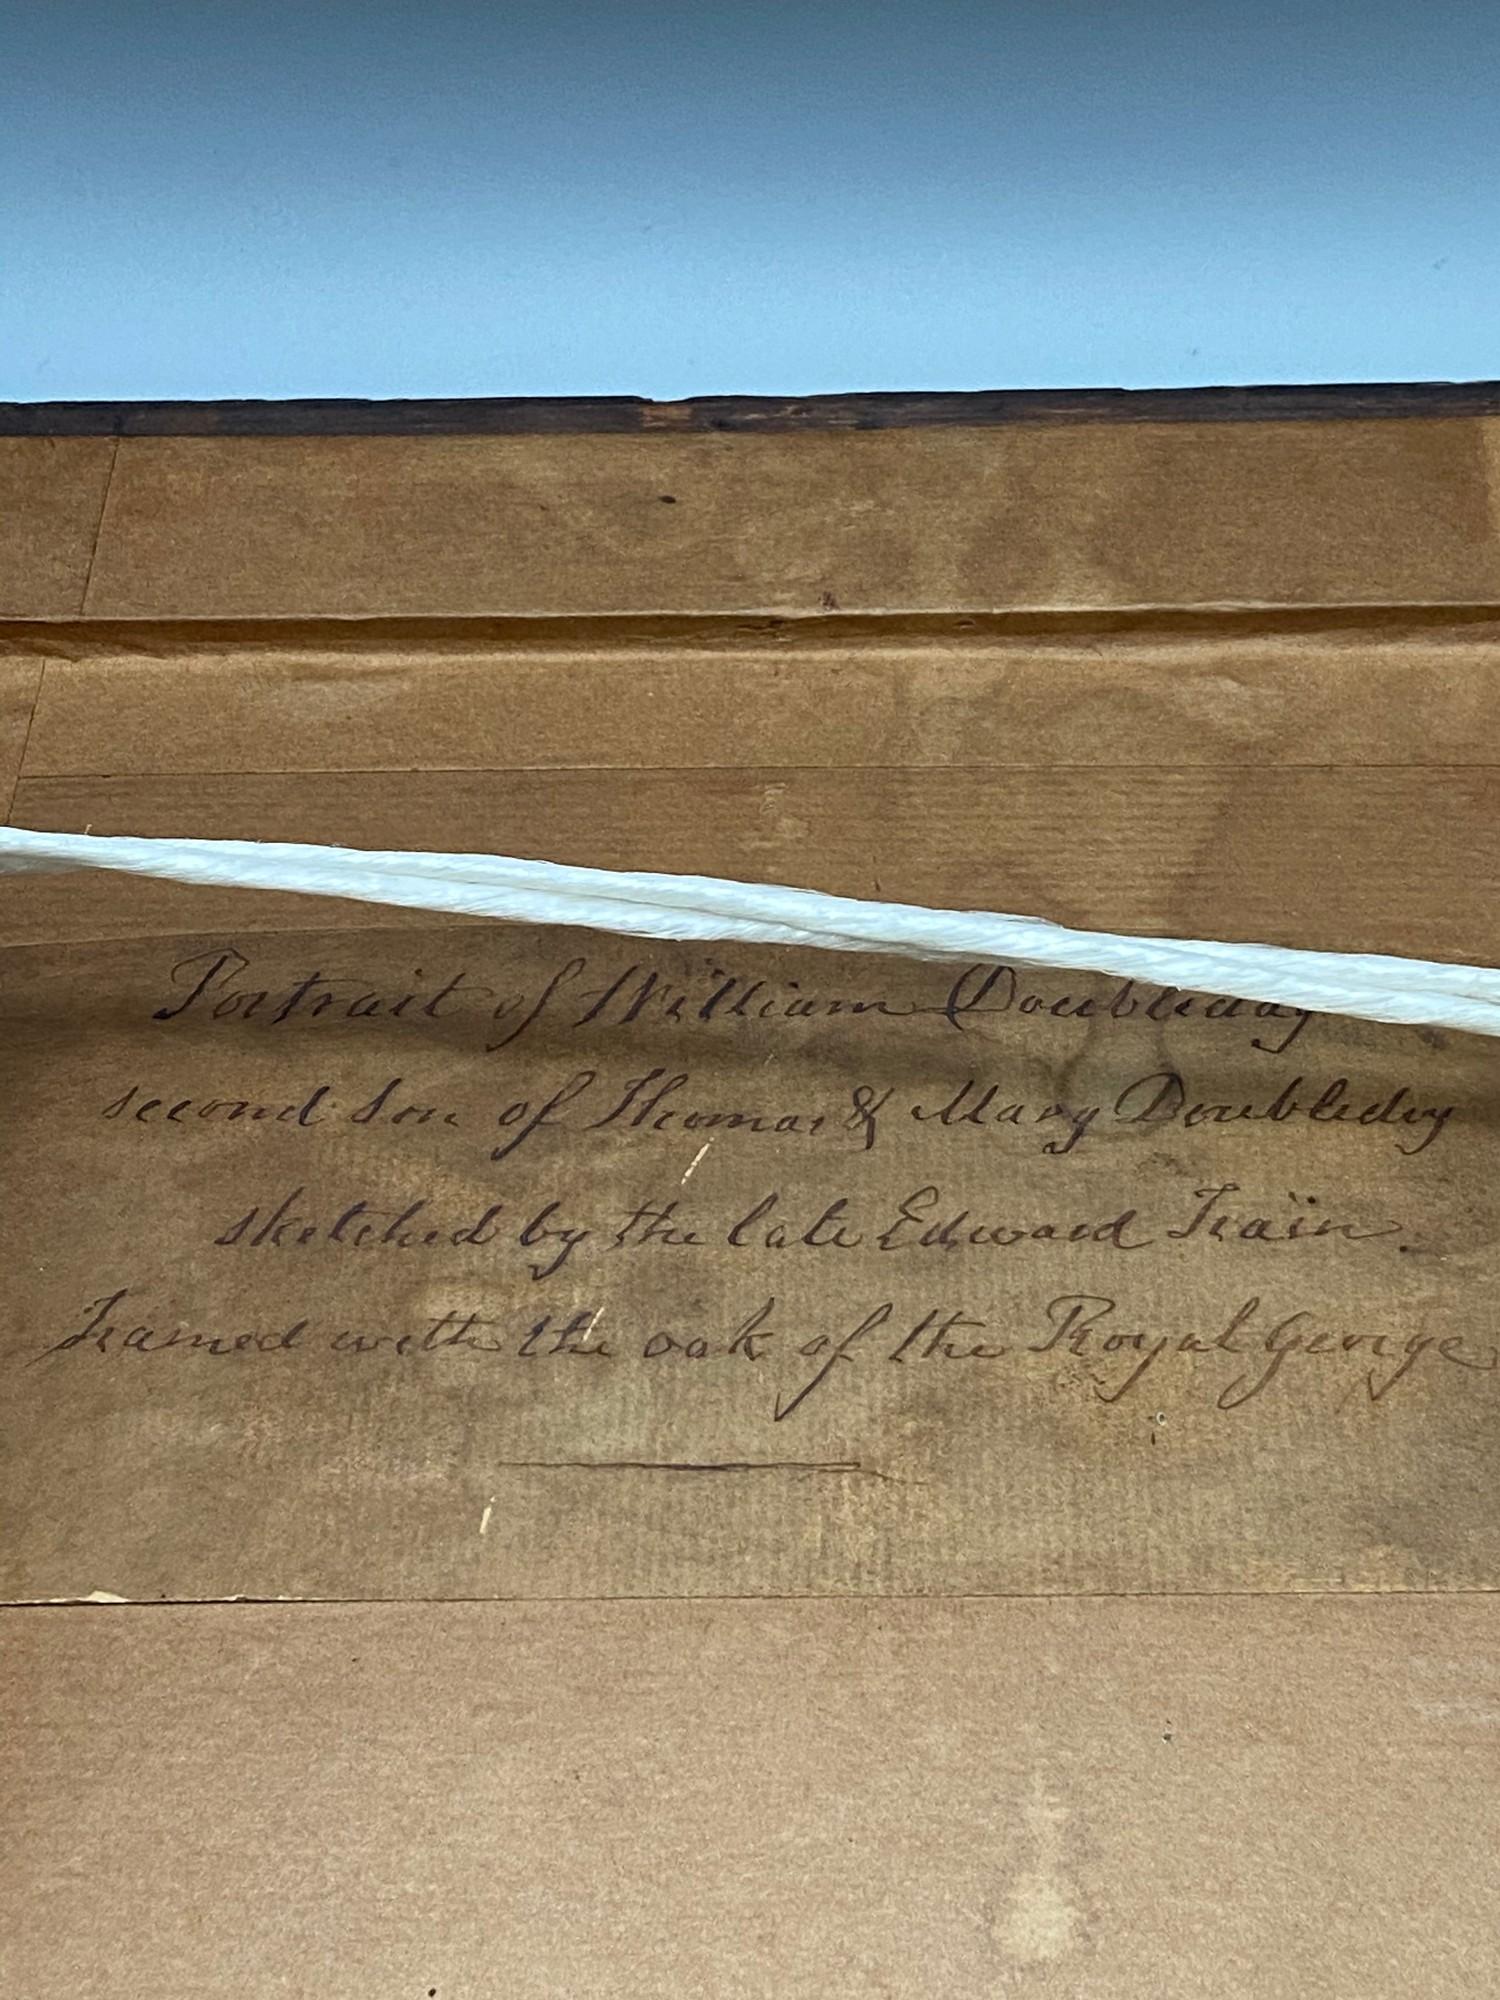 Portrait of William Doubleday
second son of Thomas & Mary Doubleday
sketched by the late Edward Train.
Framed with the oak of the Royal George